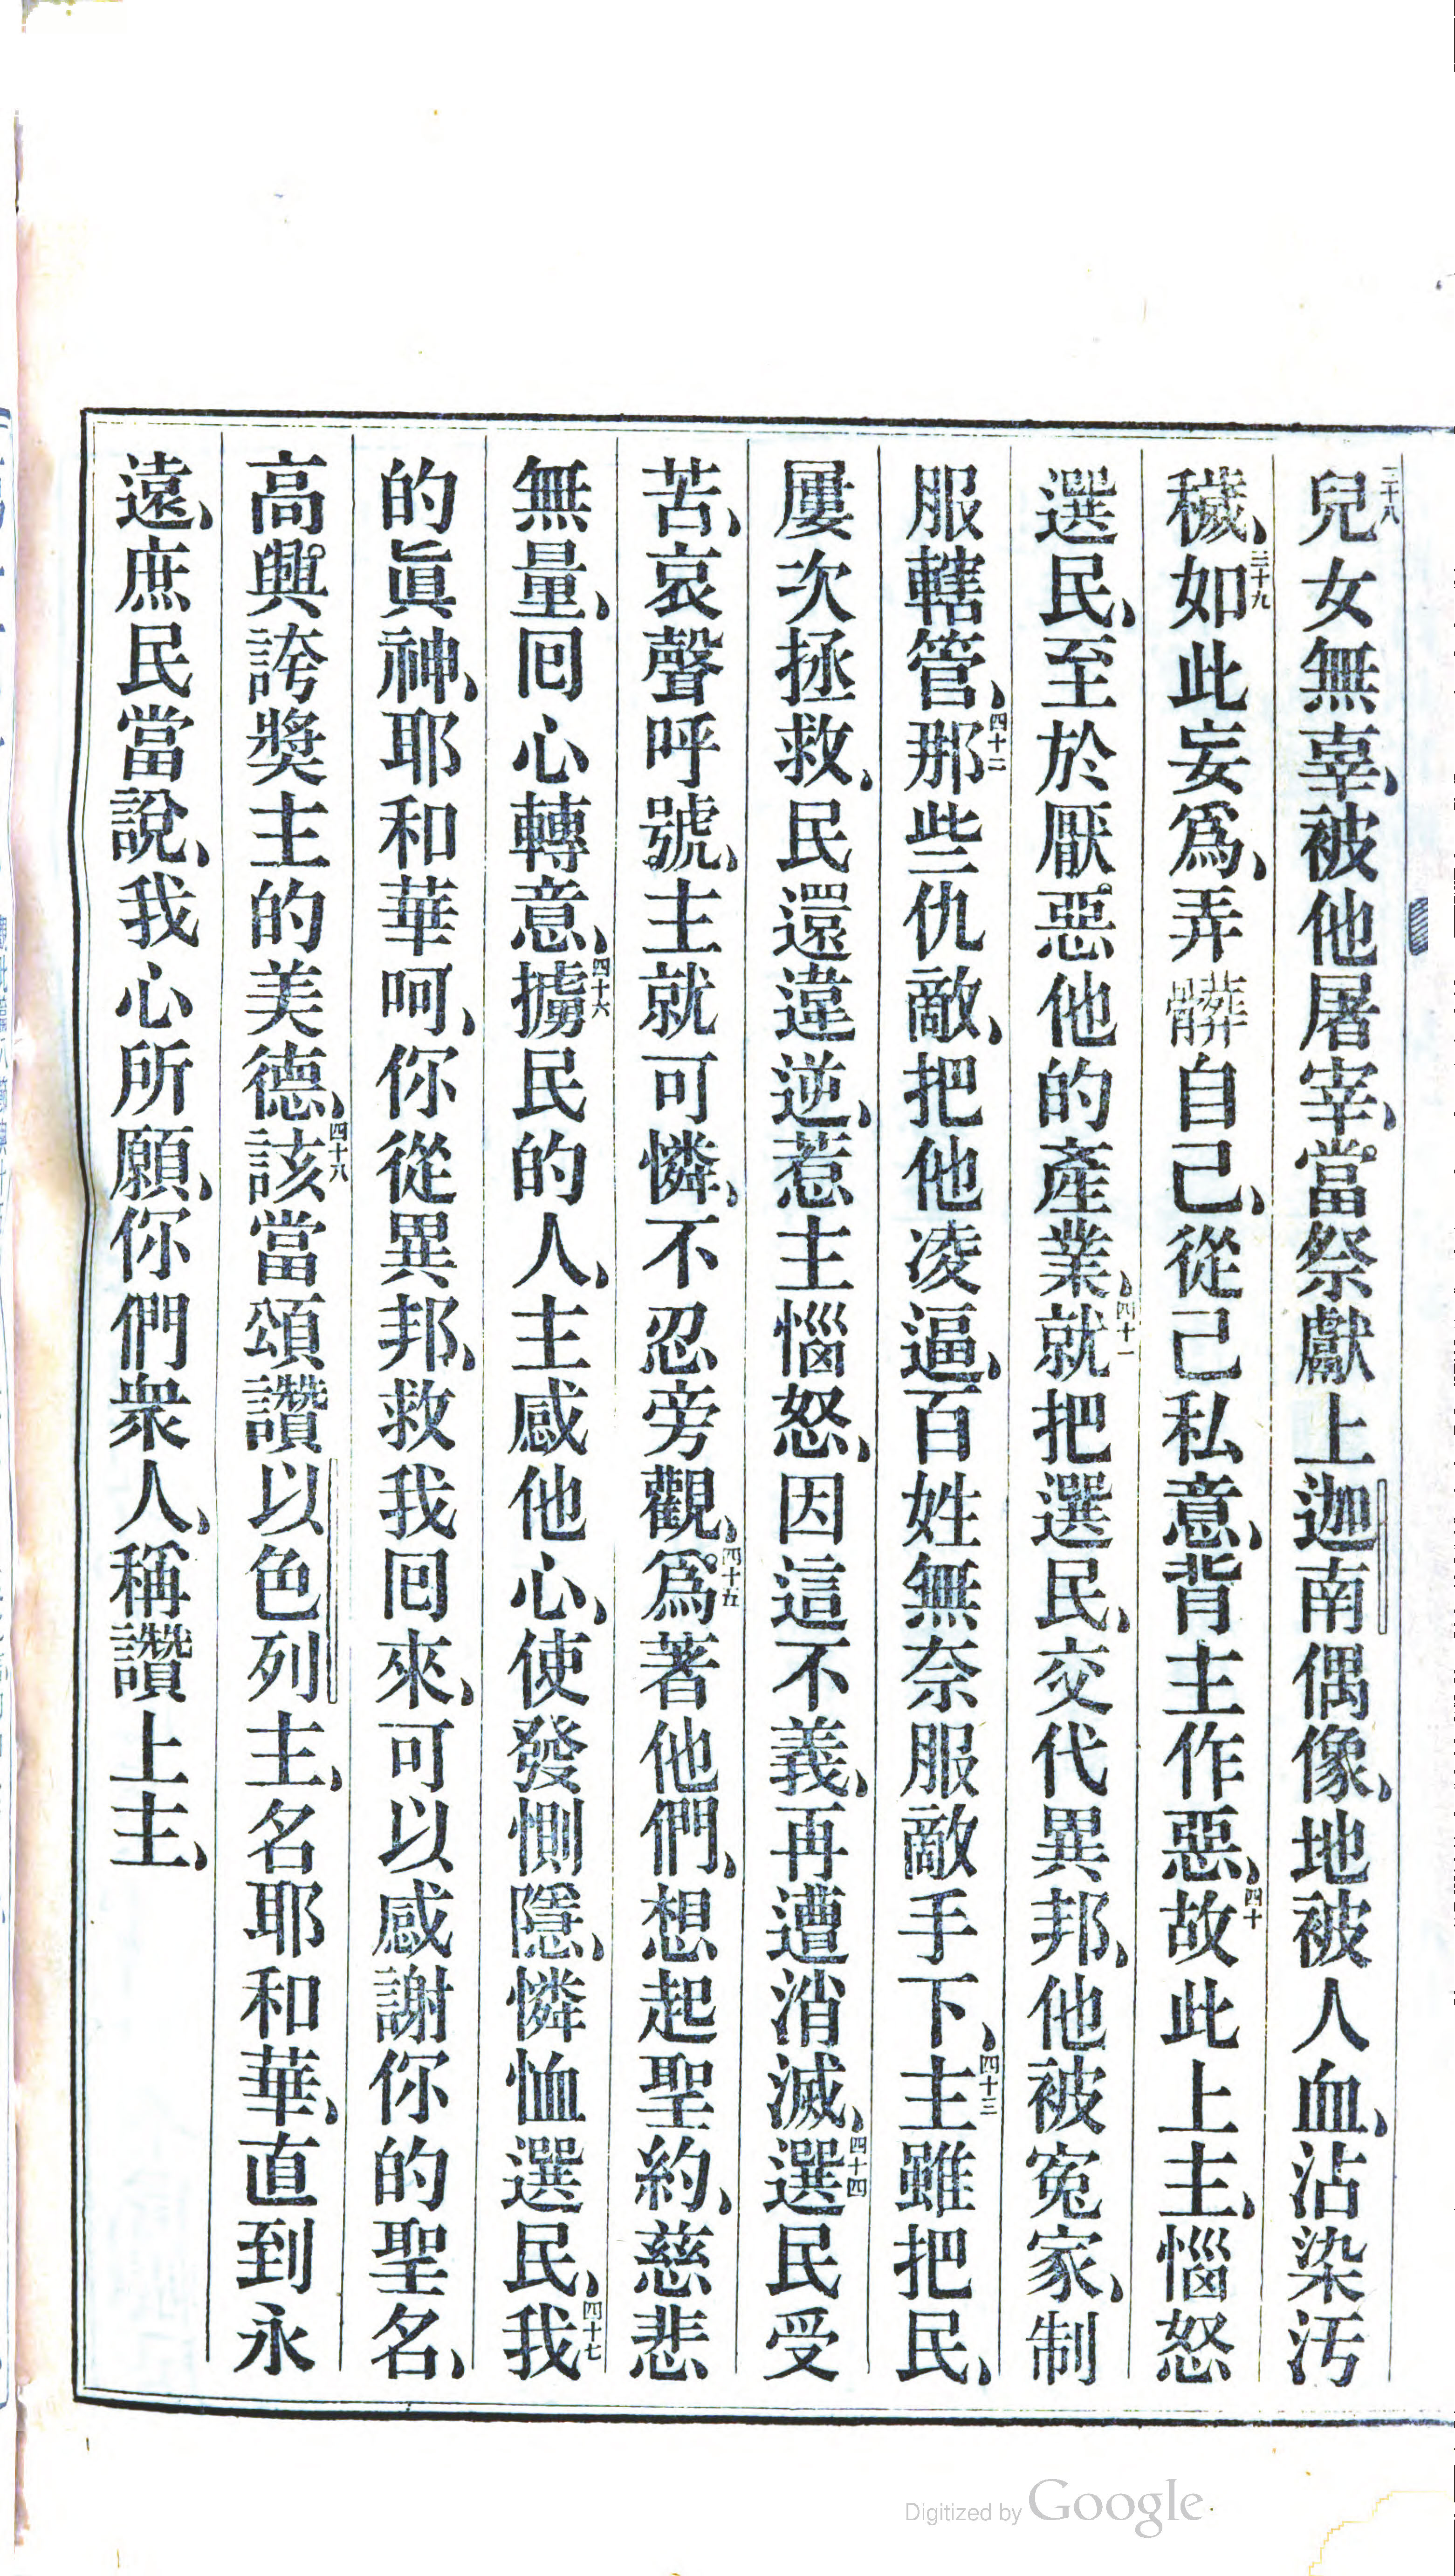 三十八兒女無辜、被他屠宰、當祭獻上迦南偶像、地被人血、沾染汚
穢、三十九如此妄爲、弄髒自己、從己私意、背主作惡、四十故此上主、惱怒
選民、至於厭惡他的產業、四十一就把選民、交代異邦、他被寃家、制
服轄管、四十二那些仇敵、把他凌逼、百姓無奈服敵手下、四十三主雖把民、
屢次拯救、民還違逆、惹主惱怒、因這不義、再遭消滅、四十四選民受
苦、哀聲呼號、主就可憐、不忍旁觀、四十五爲著他們、想起聖約、慈悲
無量、囘心轉意、四十六擄民的人、主感他心、使發惻隱、憐恤選民、四十七我
的眞神、耶和華呵、你從異邦、救我囘來、可以感謝你的聖名、
高興誇獎主的美德、四十八該當頌讚以色列主、名耶和華、直到永
遠、庶民當說、我心所願、你們衆人、稱讚上主、
Digitized by Google